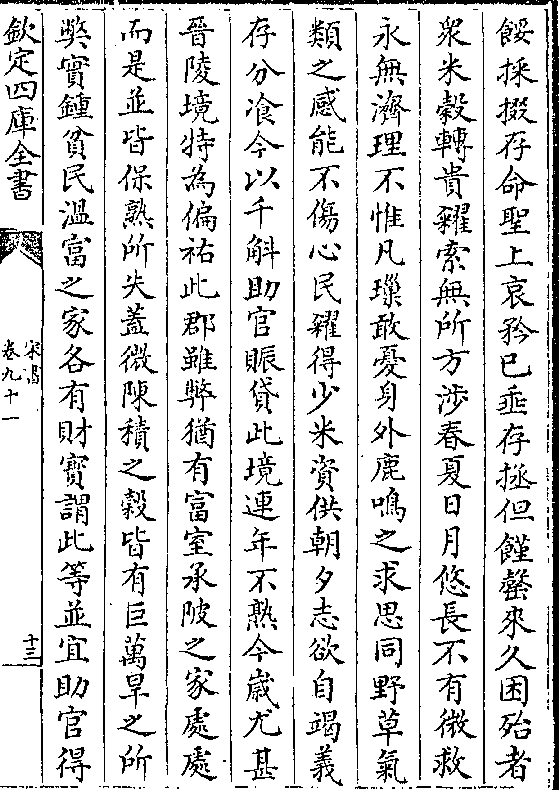 餒採掇存命聖上哀矜已垂存拯但饉罄來久困殆者
衆米穀轉貴糴索無所方涉春夏日月悠長不有微救
永無濟理不惟凡璅敢憂身外鹿鳴之求思同野草氣
類之感能不傷心民糴得少米資供朝夕志欲自竭義
存分飡今以千斛助官賑貸此境連年不熟今歲尤甚
晉陵境特為偏祐此郡雖弊猶有富室承陂之家處處
而是並皆保熟所失蓋微陳積之穀皆有巨萬旱之所
弊實鍾貧民溫富之家各有財寶謂此等並宜助官得
欽定四庫全書
宋書
卷九十一
十三